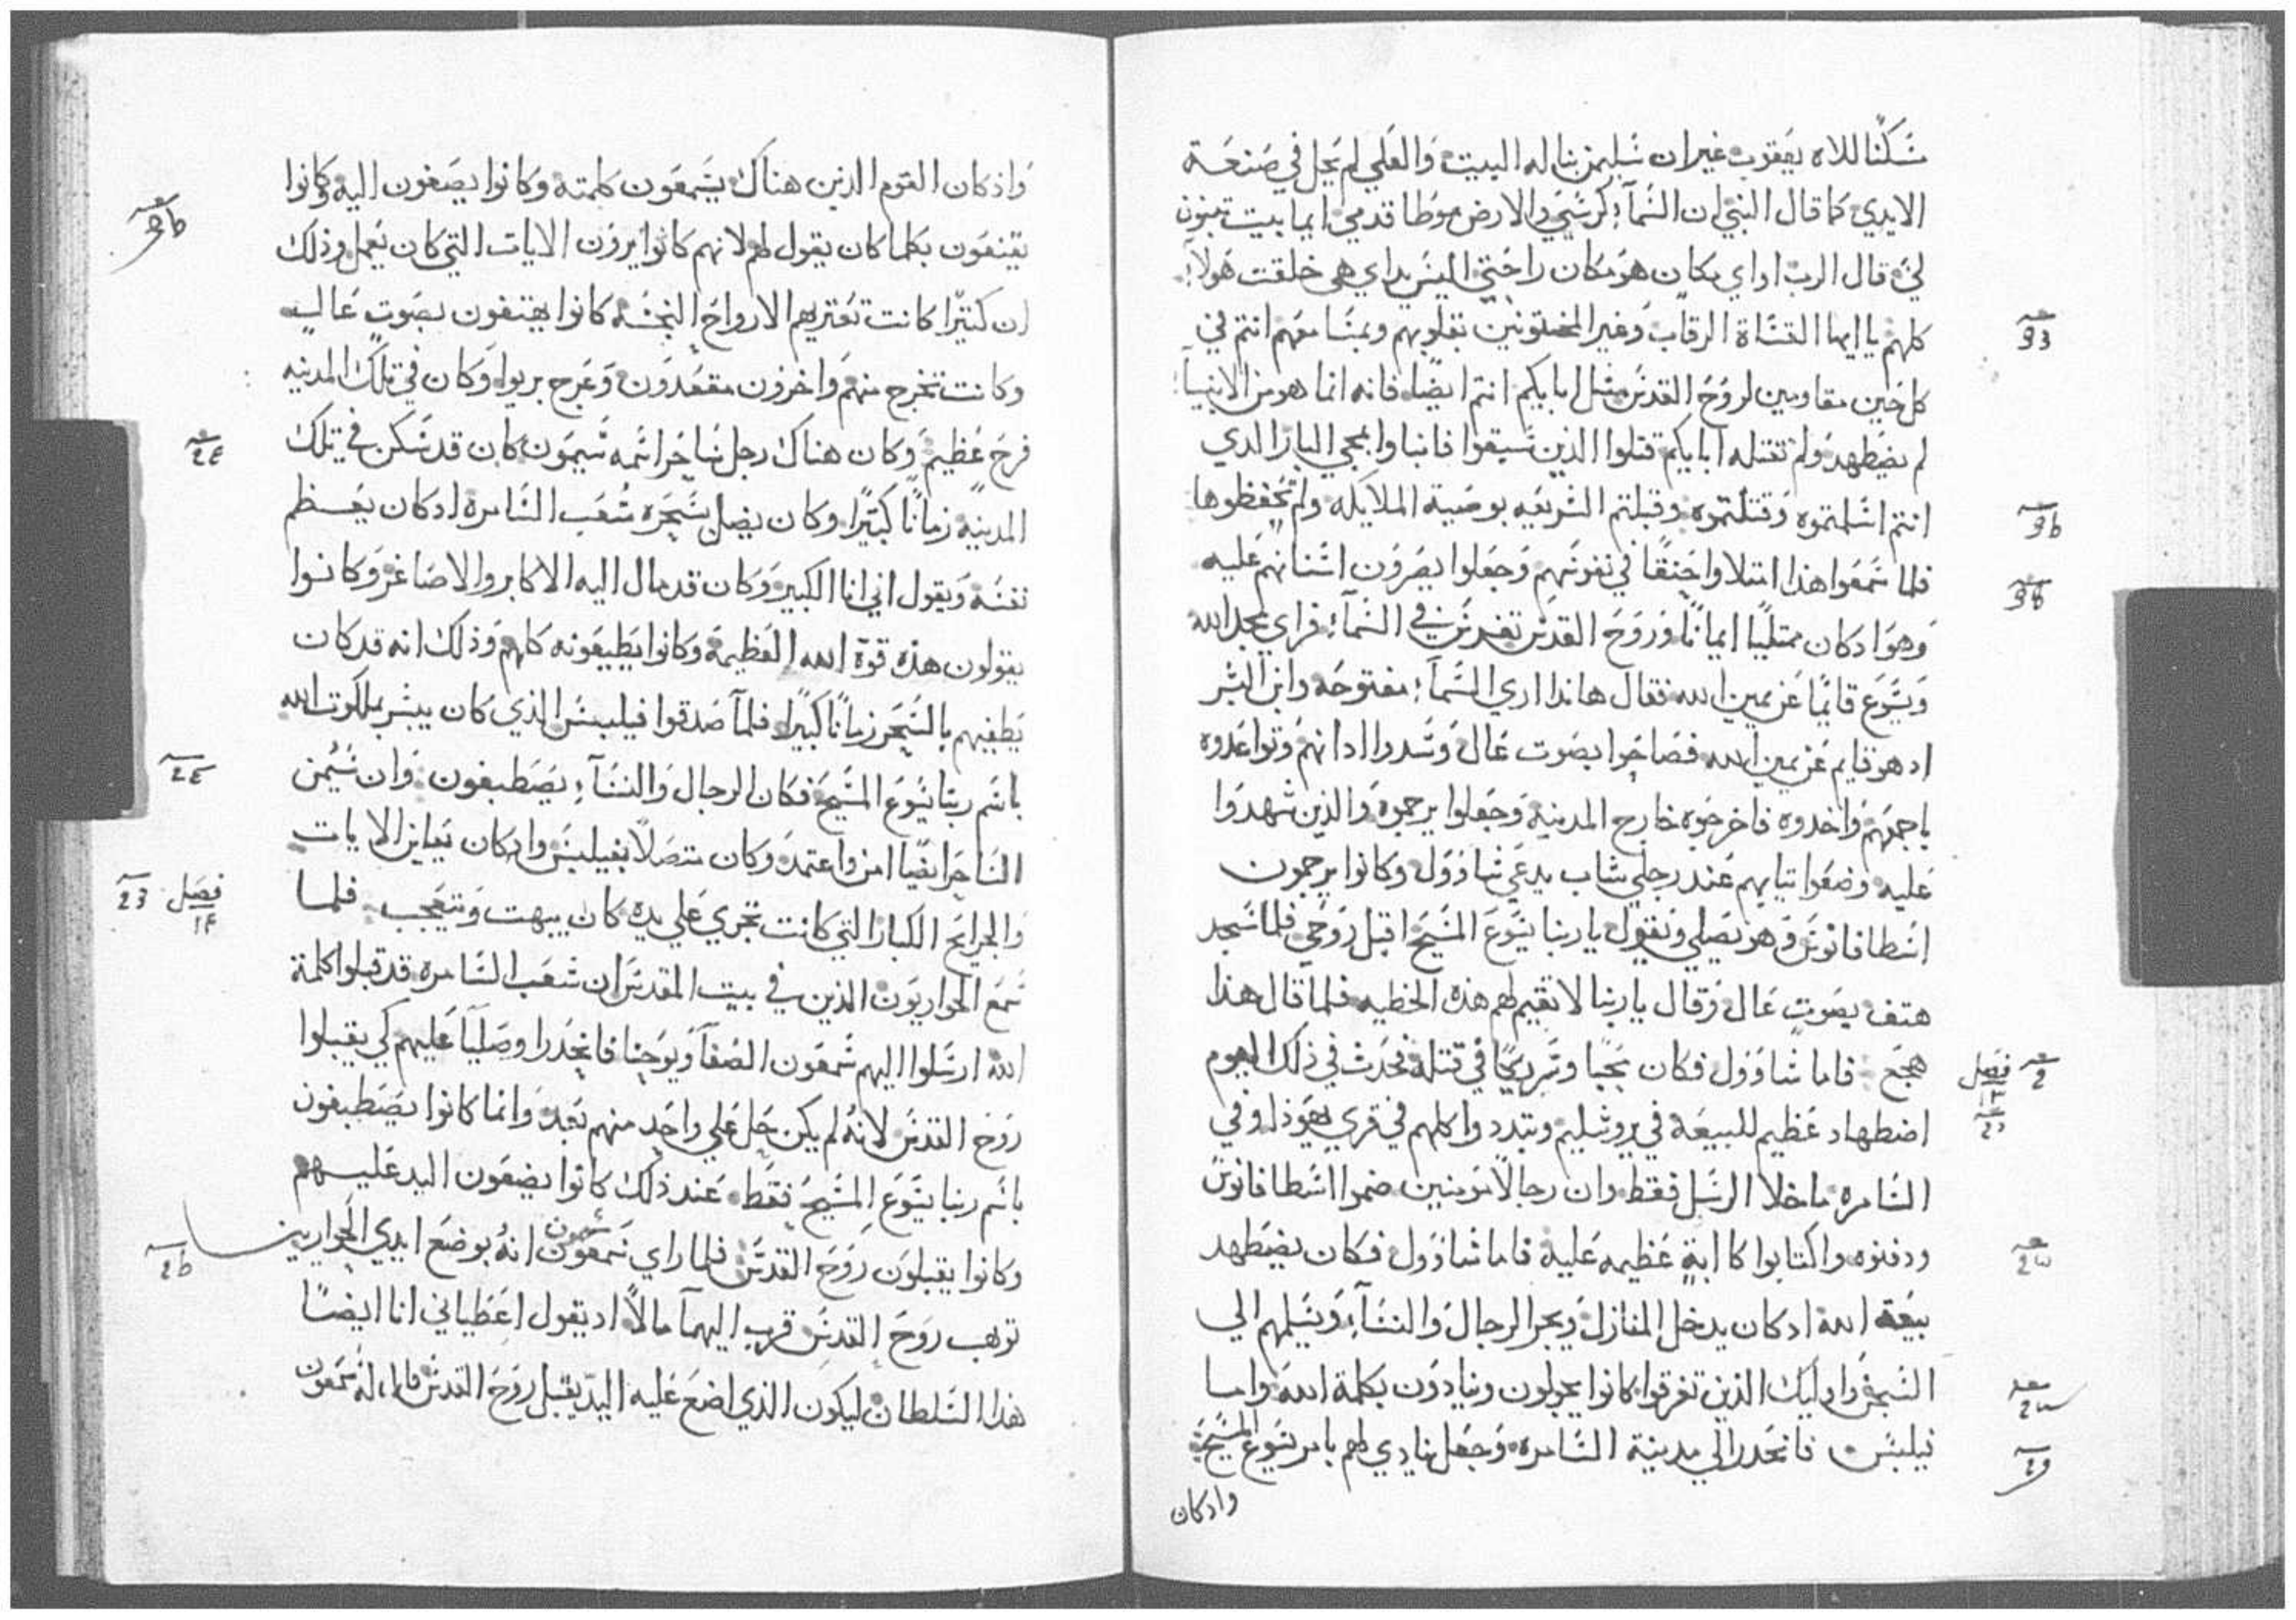 سكنًا للاه يعقوب غير ان سليمن بنا له البيت والعلي لم يحل في صنعة
الايدي كما قال النبي ان السمآء كرسي والارض موطا قدمي ايما بيت تبنون
لي قال الرب او اي مكان هو مكان راحتي اليس يداي هي خلقت هولآء
كلهم يا ايها القساة الرقاب وغير المختونين بقلوبهم وبمسامعهم انتم في
كل حين مقاومين لروح القدس مثل ابايكم انتم ايضًا فانه ايما هو من الانبيآء
لم يضطهد ولم تقتله ابايكم قتلوا الذين سبقوا فانباوا بمجي البار الدي
انتم اسلمتموه وقتلتموه وقبلتم الشريعه بوصية الملايكه ولم تحفظوها
فلما سمعوا هذا امتلاوا حنقًا في نفوسهم وجعلوا يصرون اسنانهم عليه
وهو ادكان ممتليًا ايمانًا وروح القدس تفرس في السمآء فراي مجد الله
ويسوع قايمًا عن يمين الله فقال هاندا اري السمآء مفتوحه وابن البشر
ادهو قايم عن يمين الله فصاحوا بصوت عال وسدوا ادانهم وتواعدوه
باجمعهم واخدوه فاخرجوه خارج المدينه وجعلوا يرجموه والذين شهدوا
عليه وضعوا تيابهم عند رجلي شاب يدعي شاوول وكانوا يرجمون
اسطافانوس وهو يصلي ويقول يا ربنا يسوع المسيح اقبل روحي فلما سجد
هتف بصوت عال وقال يا ربنا لا تقيم لهم هذه الخطيه فلما قال هذا
هجع فاما شاوول فكان محبًا وشريكًا في قتله فحدث في ذلك اليوم
اضطهاد عظيم للبيعه في يروشليم وتبددوا كلهم في قري يهوذا وفي
السامره ما خلا الرسل فقط وان رجالًا مومنين ضموا اسطافانوس
ودفنوه واكتابوا كابة عظيمه عليه فاما شاوول فكان يضطهد
بيعة الله ادكان يدخل المنازل ويجر الرجال والنسآء ويسلمهم الي
السجن واوليك الذين تفرقوا كانوا يجولون وينادون بكلمة الله واما
فيلبس فانحدر الي مدينة السامره وجعل ينادي لهم بامر يسوع المسيح
وادكان
فصل
واذكان القوم الذين هناك يسمعون كلمته وكانوا يصغون اليه وكانوا
يقنعون بكلما كان يقول لهم لانهم كانوا يرون الايات التي كان يعمل وذلك
ان كتيرًا كانت تعتريهم الارواح النجسه كانوا يهتفون بصوت عال
وكانت تخرج منهم واخرون مقعدون وعرج بريوا وكان في تلك المدينه
فرح عظيم وكان هناك رجل ساحر اسمه سيمون كان قد سكن في تلك
المدينه زمانًا كتيرًا وكان يضل بسحره شعب السامره ادكان يعظم
نفسه ويقول اني انا الكبير وكان قد مال اليه الاكابر والاصاغر وكانوا
يقولون هذه قوة الله العظيمة وكانوا يطيعونه كلهم وذلك انه قد كان
يطغيهم بالسحر زمانًا كبيرًا فلما صدقوا فيلبس الذي كان يبشر بملكوت الله
باسم ربنا يسوع المسيح فكان الرجال والنسآء يصطبغون وان سيمن
الساحر ايضًا امن واعتمد وكان متصلًا بفيلبس وادكان يعاين الايات
والجرايح الكبار التي كانت تجري علي يده كان يبهت ويتعجب فلما
سمع الحواريون الذين في بيت المقدس ان شعب السامره قد قبلوا كلمة
الله ارسلوا اليهم سمعون الصفا ويوحنا فانحدرا وصليا عليهم كي يقبلوا
روح القدس لانه لم يكن حل علي واحد منهم بعد وانما كانوا يصطبغون
باسم ربنا يسوع المسيح فقط عند ذلك كانوا يضعون اليد عليهم
وكانوا يقبلون روح القدس فلما راي سمعون سيمون انه بوضع ايدي الحواريين
توهب روح القدس قرب اليهما مالًا اد يقول اعطياني انا ايضًا
هذا السلطان ليكون الذي اضع عليه اليد يقبل روح القدس قال له سمعون
فصل